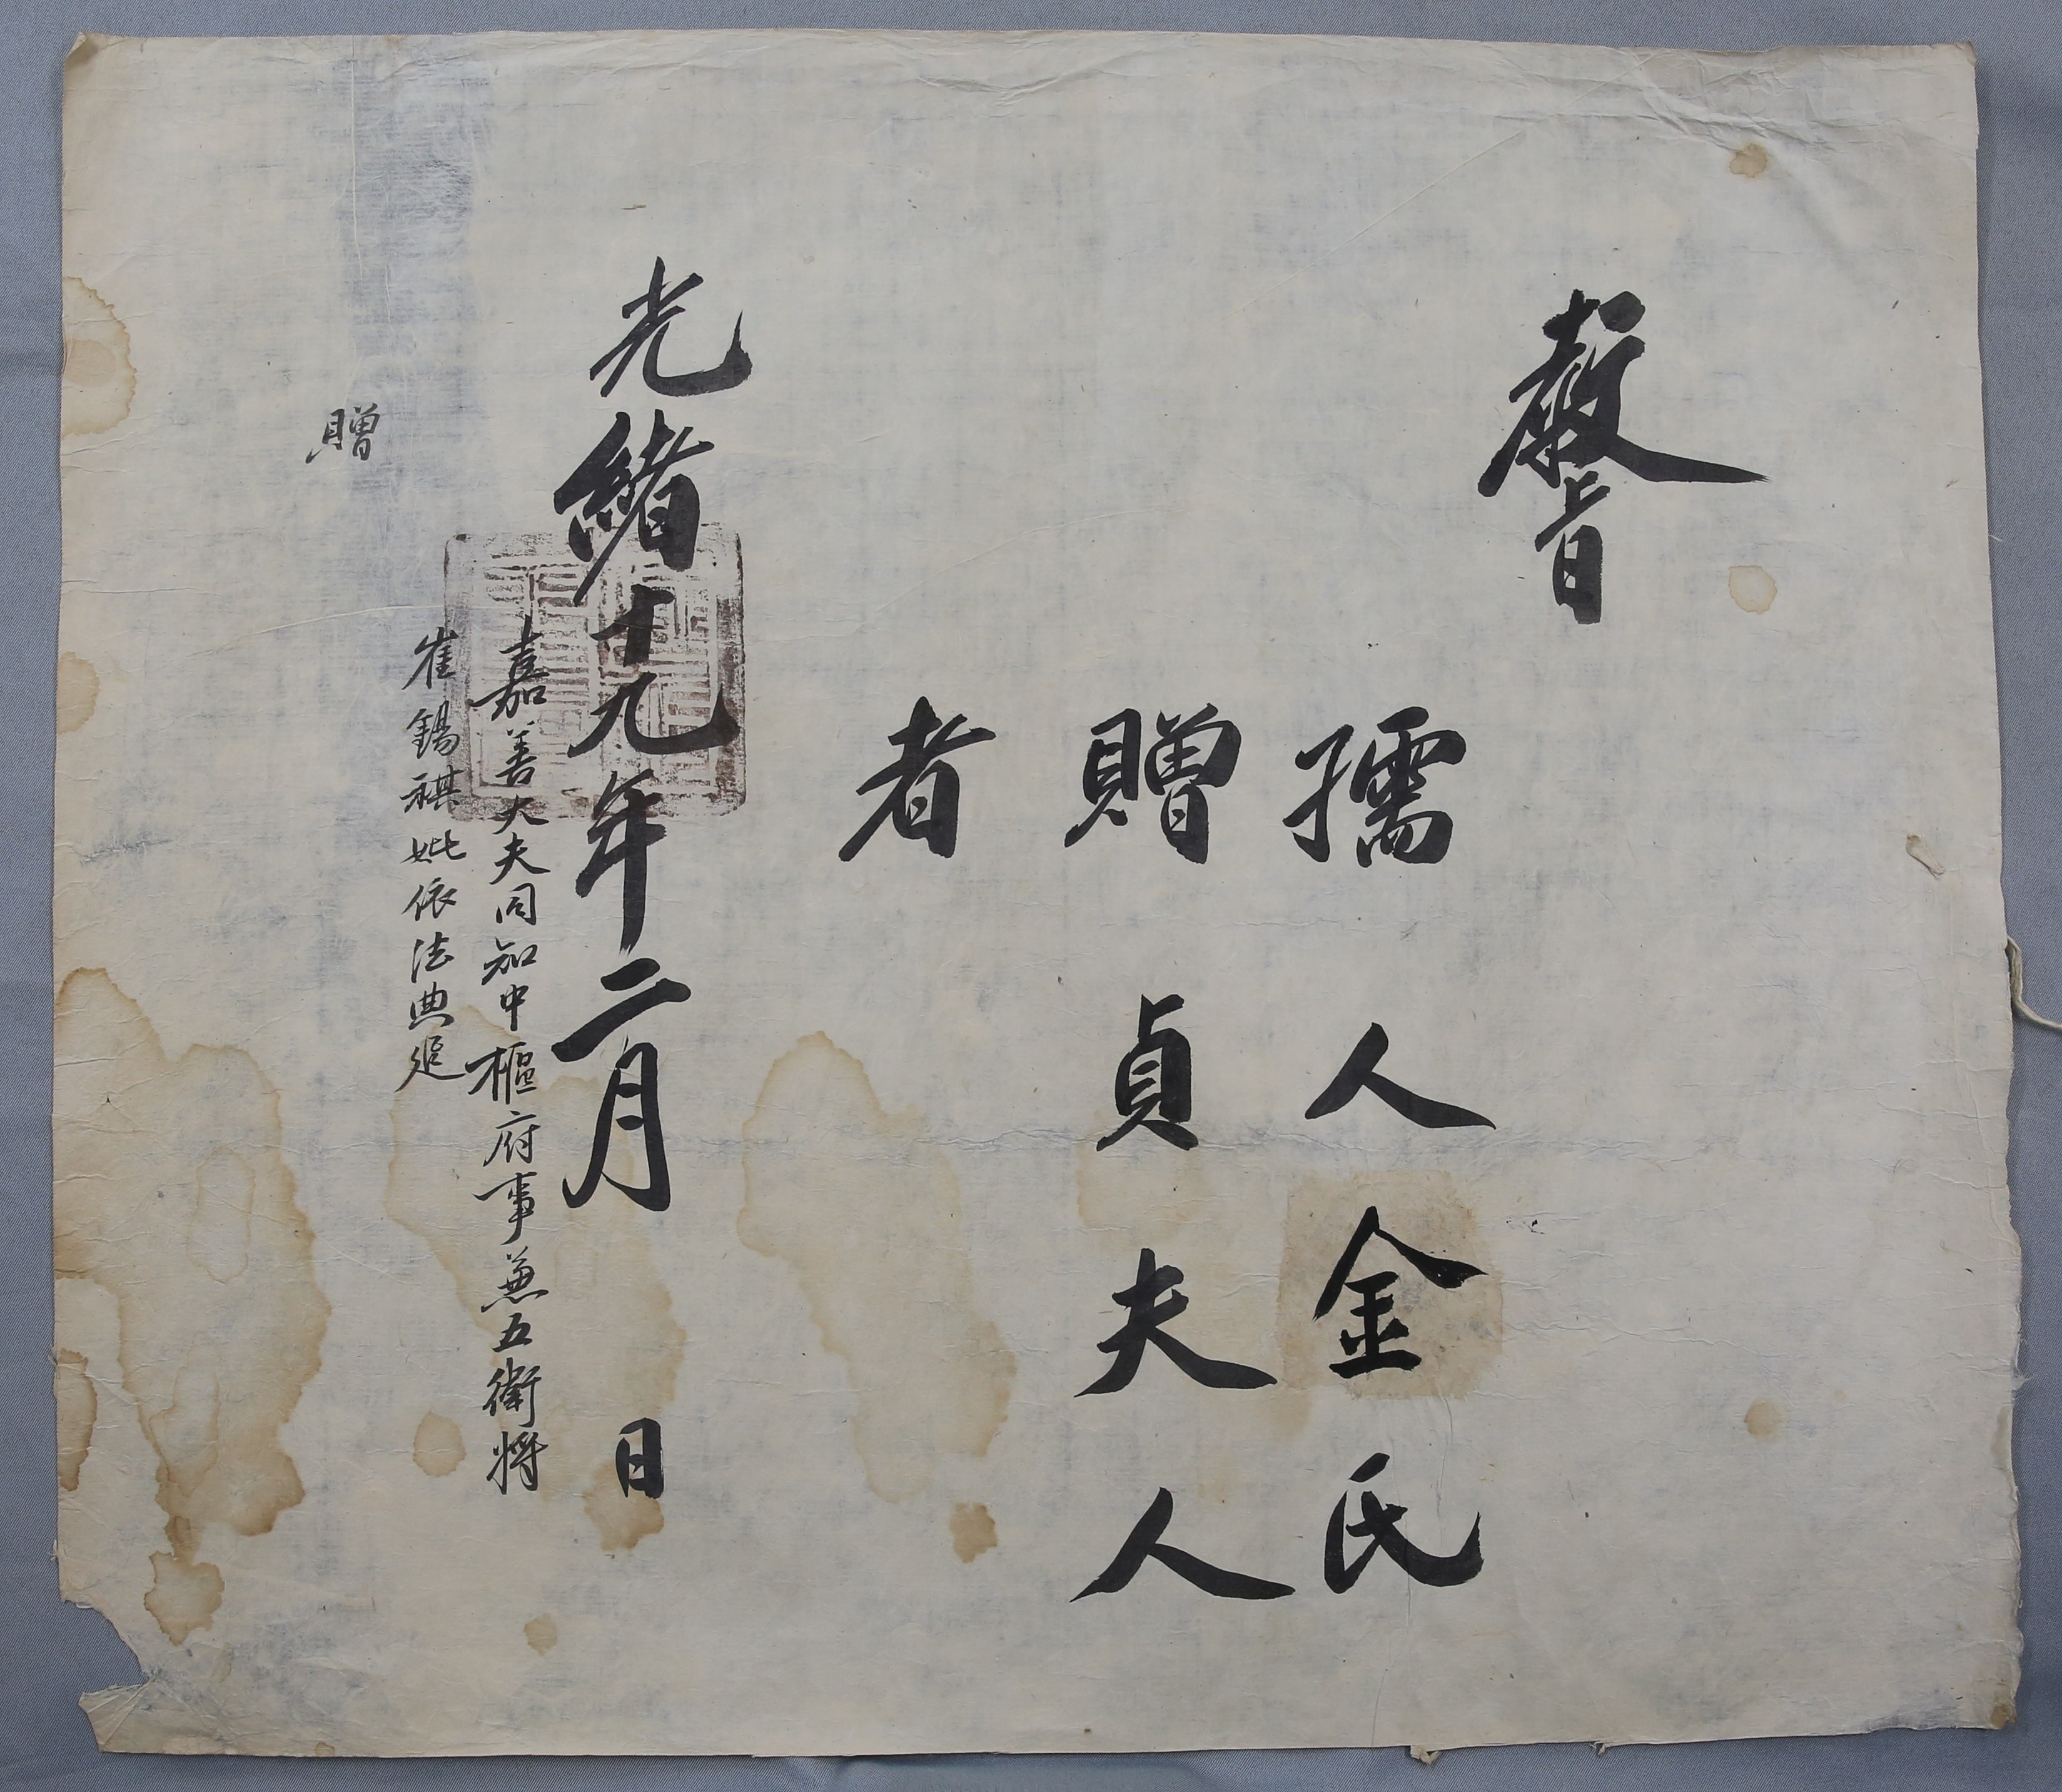 敎旨
孺人金氏
贈貞夫人
者
光緖十九年二月　日
嘉善大夫同知中樞府事兼五衛將
崔錫祺妣依法典追
贈